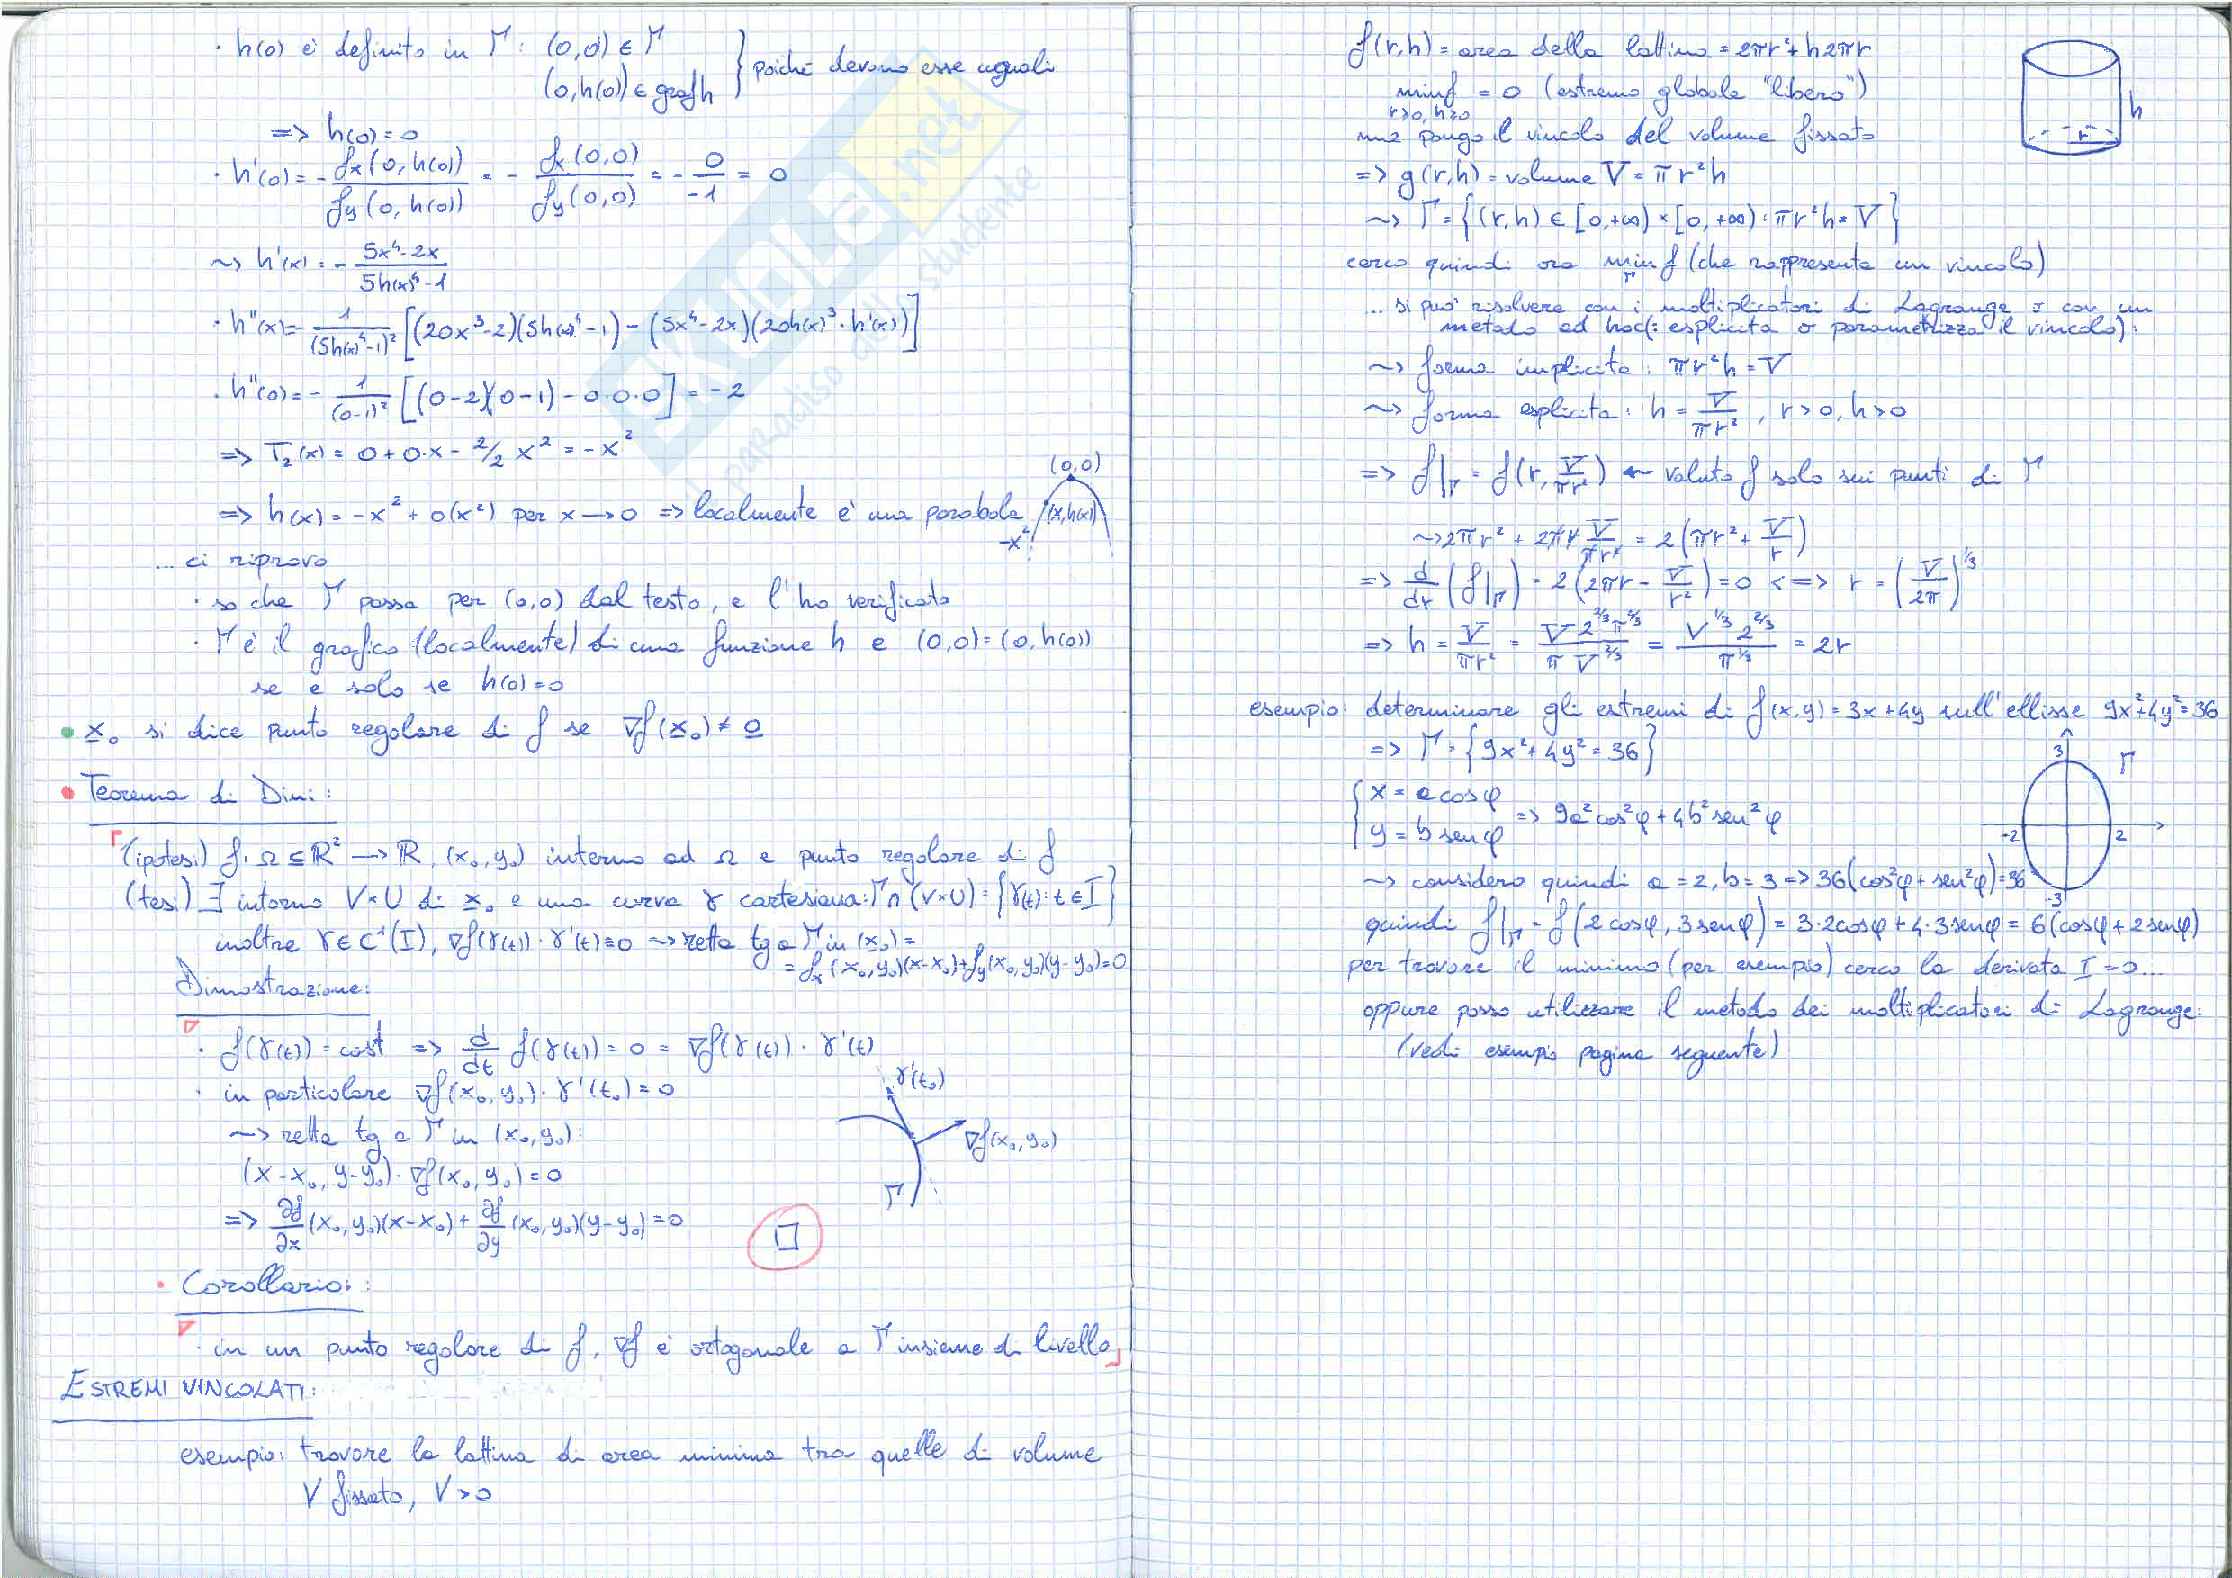 · h(0) è definito in Γ: (0,0) ∈ Γ
(0,h(0)) ∈ graf h } poiché devono esse uguali
=> h(0)=0
· h'(0) = - fx(0,h(0)) / fy(0,h(0)) = - fx(0,0) / fy(0,0) = - 0/-1 = 0
~> h'(x) = - (5x⁴-2x) / (5h(x)⁴-1)
· h''(x) = - 1/(5h(x)⁴-1)² [(20x³-2)(5h(x)⁴-1) - (5x⁴-2x)(20h(x)³·h'(x))]
· h''(0) = - 1/(0-1)² [(0-2)(0-1) - 0·0·0] = -2
=> T₂(x) = 0+0·x - 2/2 x² = -x²
=> h(x) = -x² + o(x²) per x → 0 => localmente è una parabola
(0,0)
(x,h(x))
-x²
... ci riprovo
· so che Γ passa per (0,0) dal testo, e l'ho verificato
· Γ è il grafico (localmente) di una funzione h e (0,0) = (0,h(0))
se e solo se h(0)=0
• x₀ si dice punto regolare di f se ∇f(x₀) ≠ 0
• Teorema di Dini:
(ipotesi) f: Ω ⊆ ℝ² → ℝ, (x₀,y₀) interno ad Ω e punto regolare di f
(tesi) ∃ intorno V×U di x₀ e una curva γ cartesiana: Γ∩(V×U) = {γ(t): t∈I}
inoltre γ∈C¹(I), ∇f(γ(t))·γ'(t)=0 ~> retta tg a Γ in (x₀) =
= fx(x₀,y₀)(x-x₀)+fy(x₀,y₀)(y-y₀)=0
Dimostrazione:
· f(γ(t)) = cost => d/dt f(γ(t)) = 0 = ∇f(γ(t))·γ'(t)
· in particolare ∇f(x₀,y₀)·γ'(t₀)=0
~> retta tg a Γ in (x₀,y₀):
(x-x₀, y-y₀)·∇f(x₀,y₀)=0
=> ∂f/∂x (x₀,y₀)(x-x₀) + ∂f/∂y (x₀,y₀)(y-y₀)=0
γ'(t₀)
∇f(x₀,y₀)
Γ
□
• Corollario:
· in un punto regolare di f, ∇f è ortogonale a Γ insieme di livello
ESTREMI VINCOLATI:
esempio: trovare la lattina di area minima tra quelle di volume
V fissato, V>0
f(r,h) = area della lattina = 2πr²+h2πr
min f = 0 (estremo globale "libero")
r>0, h>0
ma pongo il vincolo del volume fissato
=> g(r,h) = volume V = πr²h
~> Γ = {(r,h) ∈ [0,+∞) × [0,+∞) : πr²h = V}
cerco quindi ora min f (che rappresenta un vincolo)
Γ
... si può risolvere con i moltiplicatori di Lagrange o con un
metodo ad hoc (: esplicita o parametrizza il vincolo):
~> forma implicita: πr²h = V
~> forma esplicita: h = V/πr², r>0, h>0
=> f|Γ = f(r, V/πr²) ← valuto f solo sui punti di Γ
~> 2πr² + 2πr V/πr² = 2(πr² + V/r)
=> d/dr (f|Γ) = 2(2πr - V/r²) = 0 <=> r = (V/2π)^1/3
=> h = V/πr² = V 2^2/3 π^2/3 / π V^2/3 = V^1/3 2^2/3 / π^1/3 = 2r
h
r
esempio: determinare gli estremi di f(x,y)=3x+4y sull'ellisse 9x²+4y²=36
=> Γ = {9x²+4y²=36}
{ x = a cosφ
y = b senφ => 9a²cos²φ+4b²sen²φ
3
Γ
-2
2
-3
~> considero quindi a=2, b=3 => 36(cos²φ+sen²φ)=36
quindi f|Γ = f(2cosφ, 3senφ) = 3·2cosφ+4·3senφ = 6(cosφ+2senφ)
per trovare il minimo (per esempio) cerco la derivata I=0...
oppure posso utilizzare il metodo dei moltiplicatori di Lagrange:
(vedi esempio pagina seguente)
SKUOLA.net
il paradiso dello studente